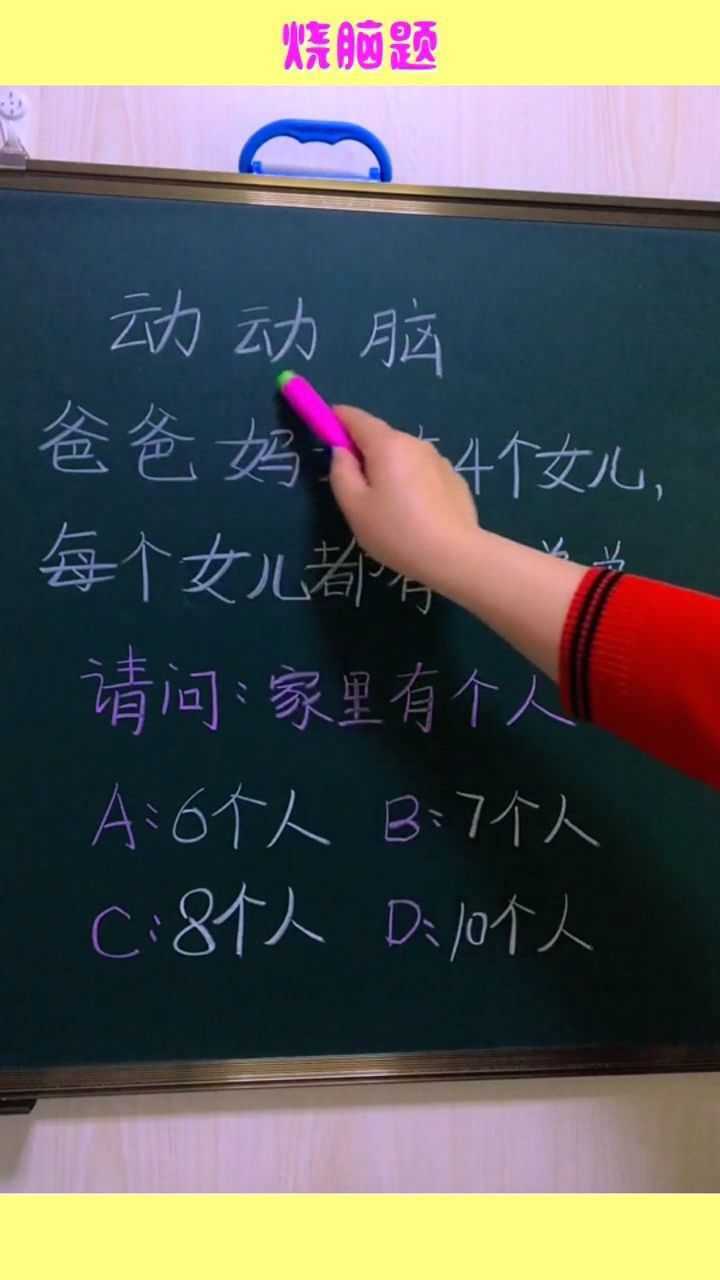 烧脑题
动动脑
爸爸妈 4个女儿,
每个女儿都有
请问:家里有个人
A:6个人 B:7个人
C:8个人 D:10个人